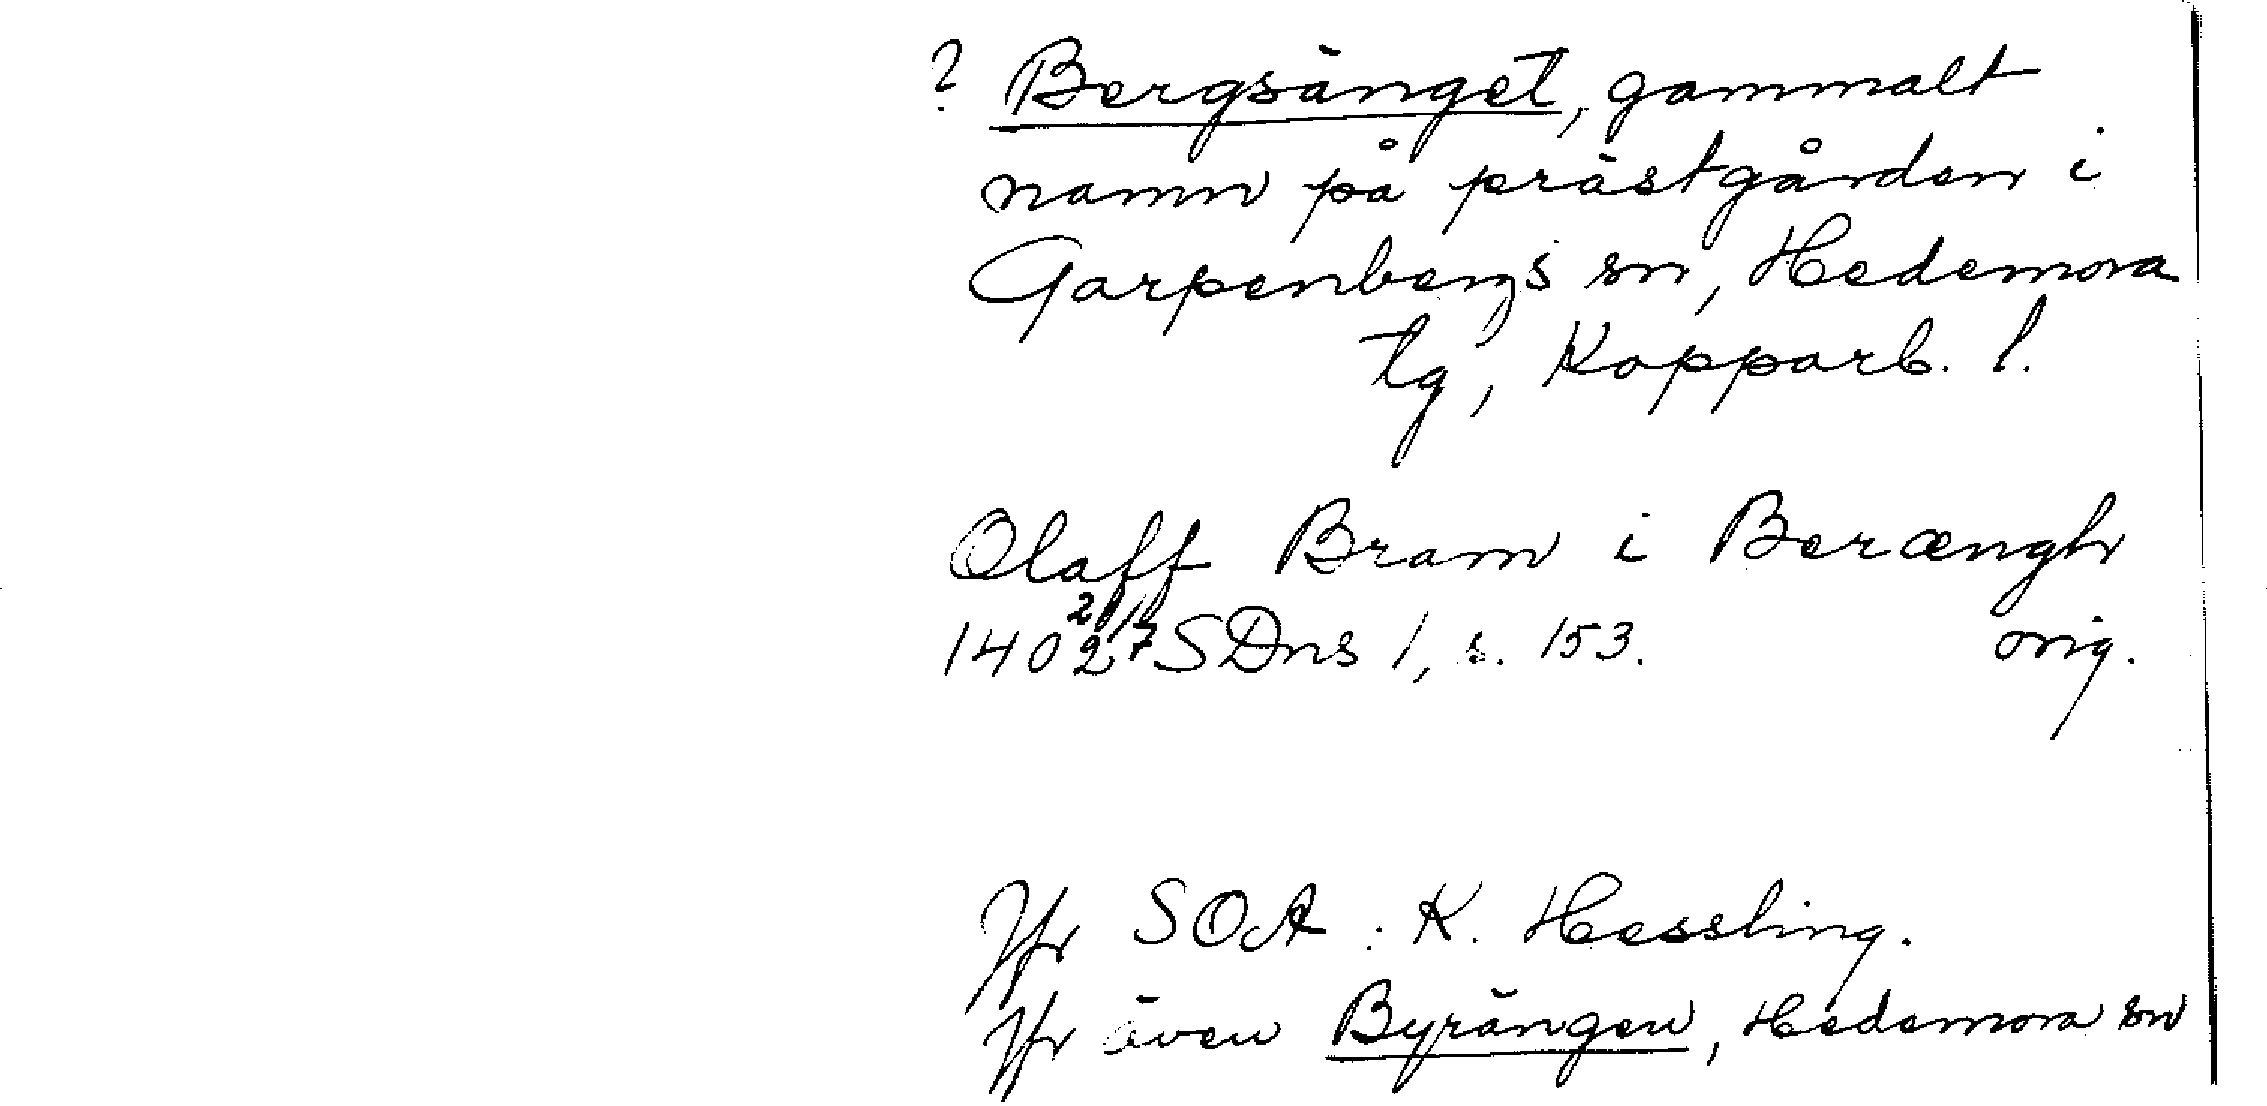 ? Bergsänget, gammalt
namn på prästgården i
Garpenbergs sn, Hedemora
tg, Kopparb. l.
Olaff Bram i Berængh
1402 2/7 SDns 1, s. 153. orig.
Jfr SOA : K. Hessling.
Jfr även Byrängen, Hedemora sn